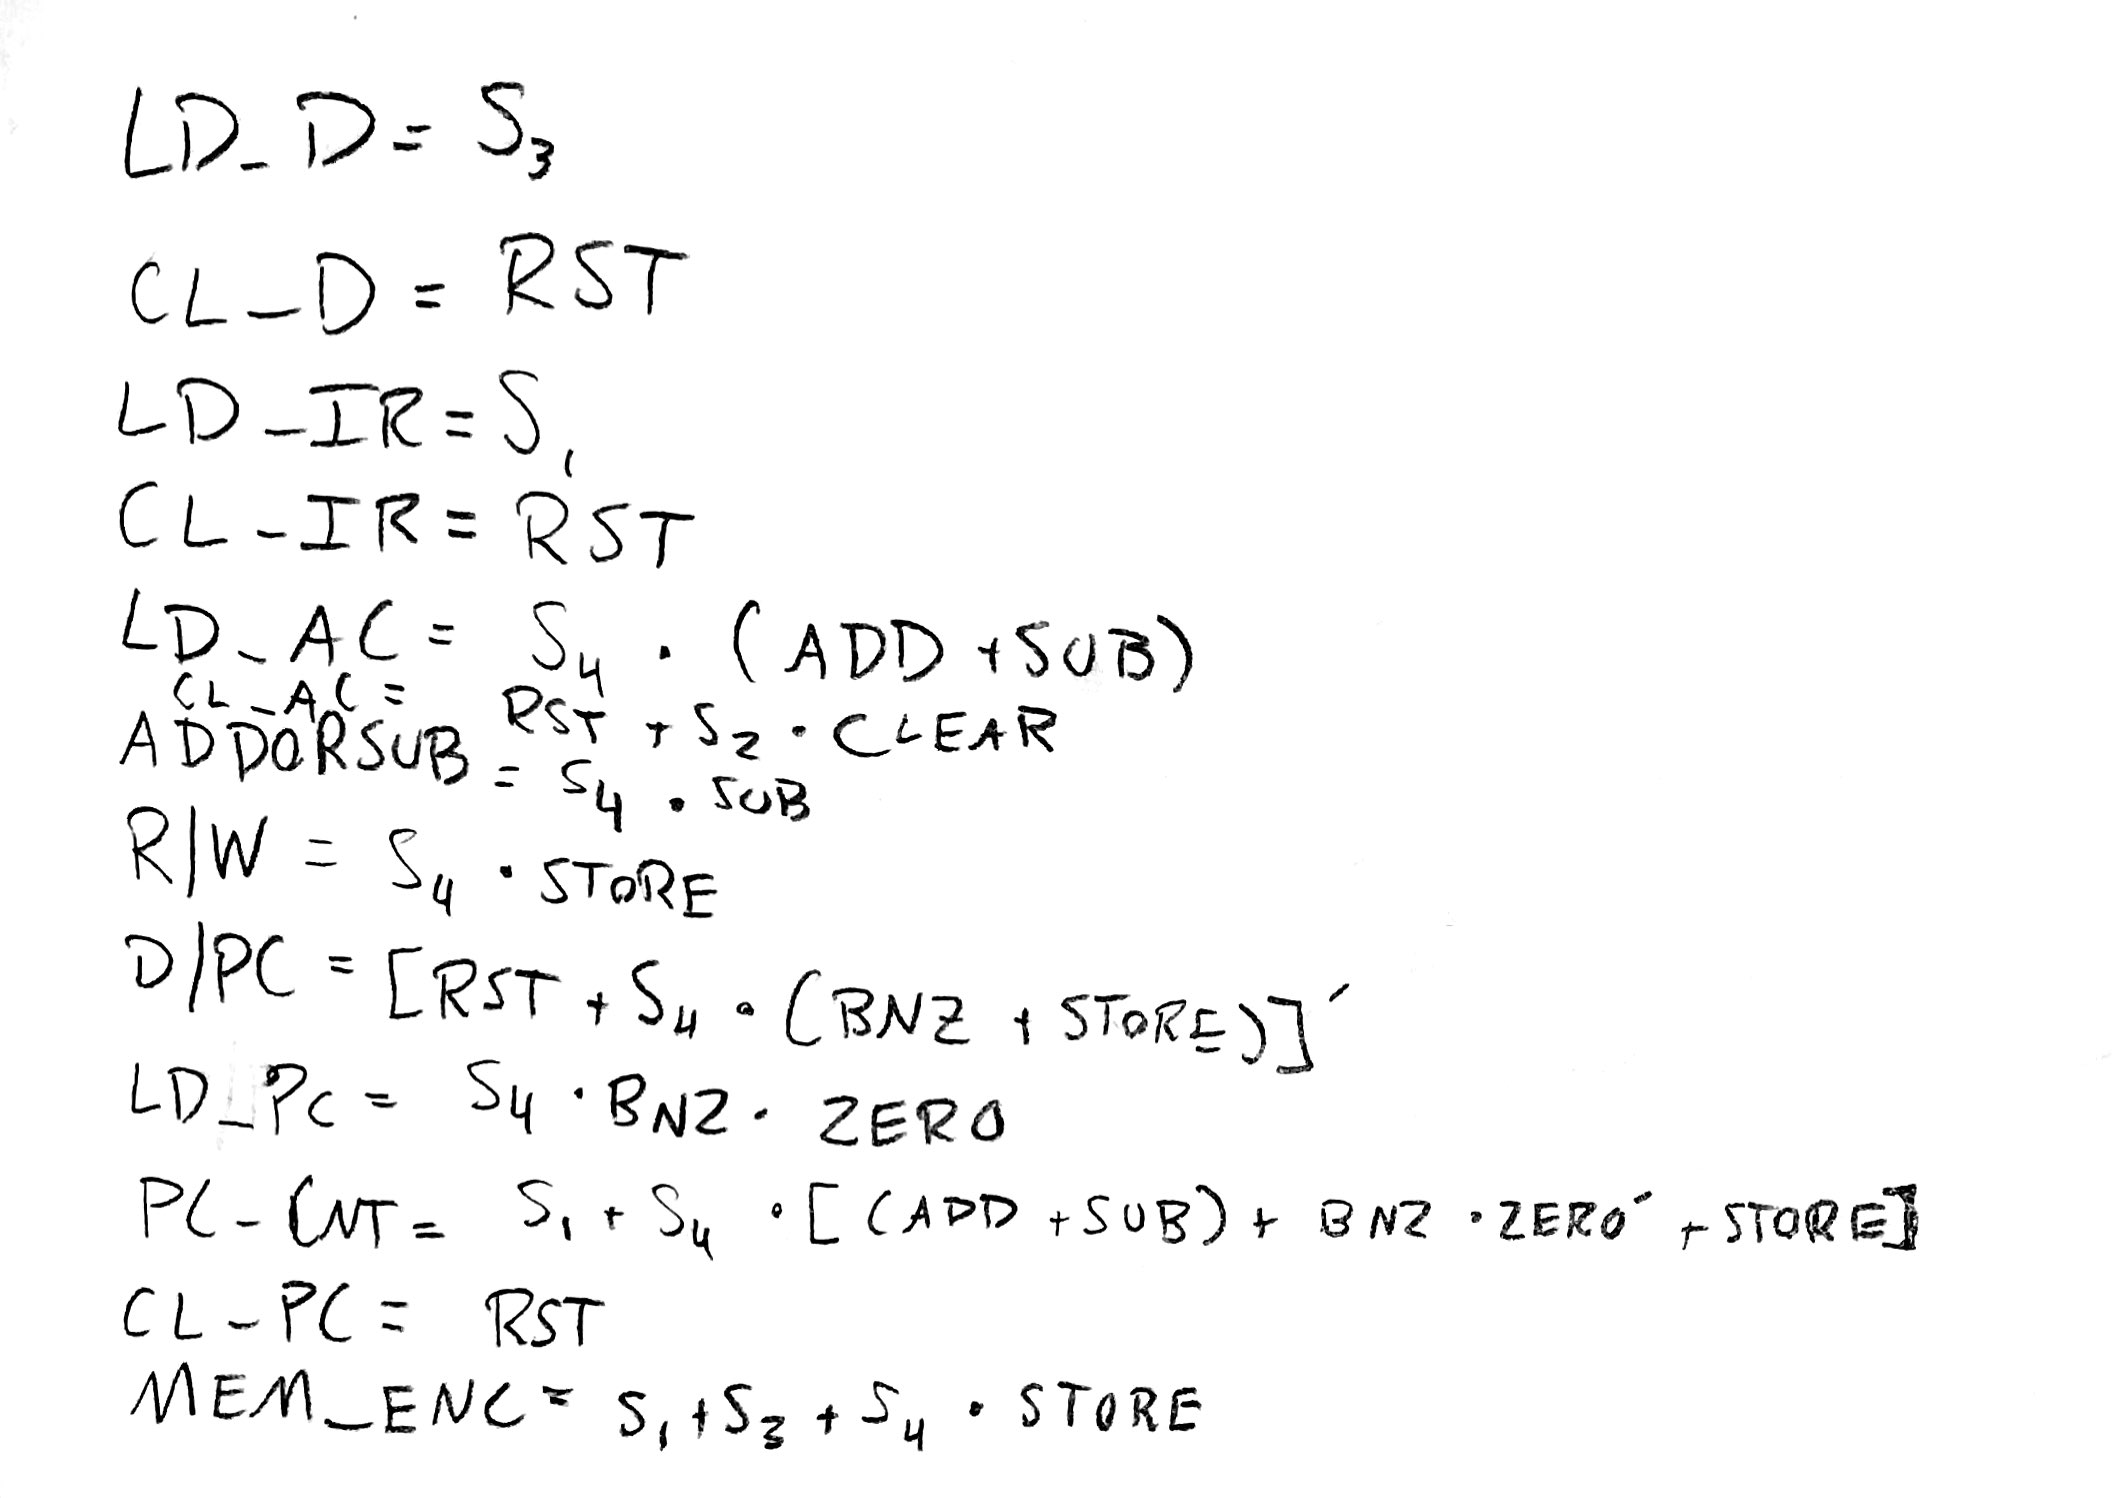 LD_D = S₃
CL_D = RST
LD_IR = S₁
CL_IR = RST
LD_AC = S₄ · (ADD + SUB)
CL_AC = RST + S₂ · CLEAR
ADDORSUB = S₄ · SUB
R/W = S₄ · STORE
D/PC = [RST + S₄ · (BNZ + STORE)]'
LD_PC = S₄ · BNZ · ZERO
PC_CNT = S₁ + S₄ · [(ADD + SUB) + BNZ · ZERO' + STORE]
CL_PC = RST
MEM_ENC = S₁ + S₃ + S₄ · STORE